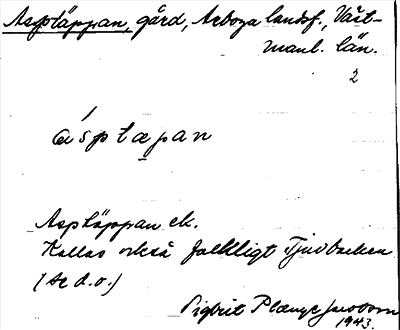 Asptäppan, gård, Arboga landsf., Väst-
manl. län.
2
ásptæpan
Asptäppan ek.
Kallas också folkligt Tjuvbacken
(Se d.o.)
Sigbrit Plænge Jacobson
1943.